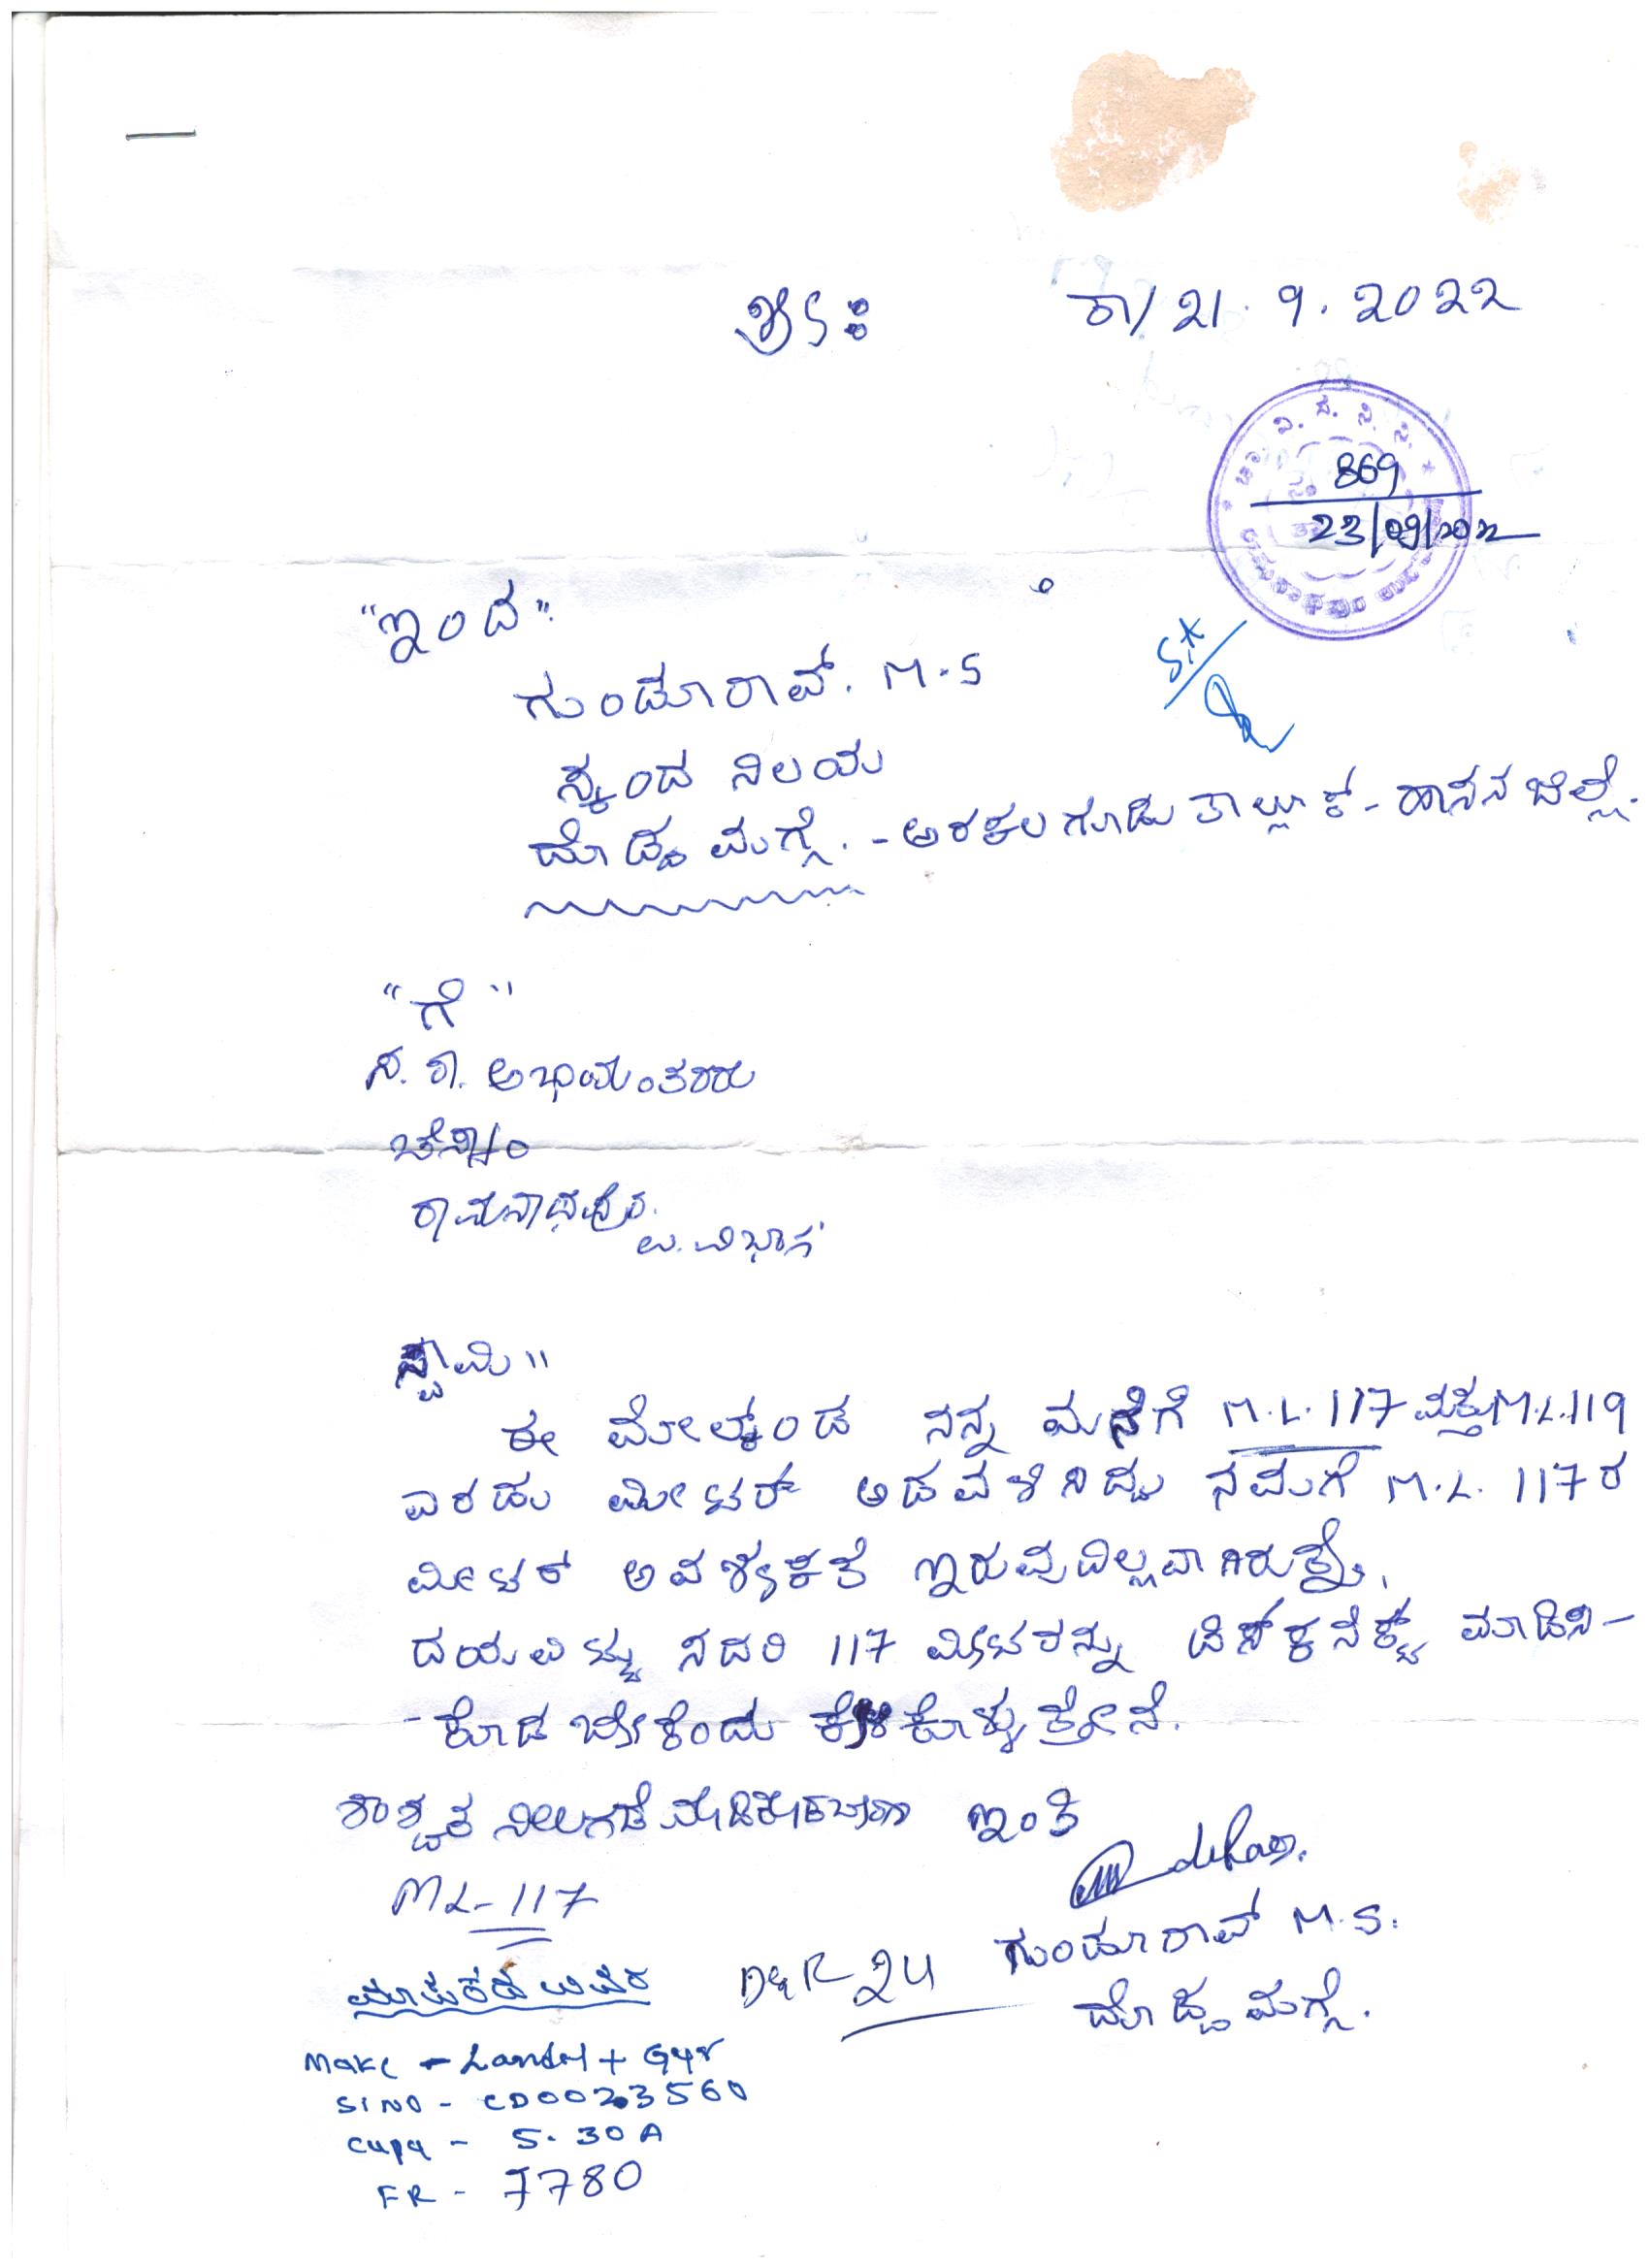 ಶ್ರೀಃ ತಾ/ 21.9.2022
ಚಾ. ವಿ. ಸ. ನಿ. ನಿ.
869
23/09/2022
"ಇಂದ"
ಗುಂಡೂರಾವ್. M.S
ಸ್ಕಂದ ನಿಲಯ
ದೊಡ್ಡಮಗ್ಗೆ. - ಅರಕಲಗೂಡು ತಾಲ್ಲೂಕ್ - ಹಾಸನ ಜಿಲ್ಲೆ.
"ಗೆ"
ಸ. ಕಾ. ಅಭಿಯಂತರರು
ರಾಮನಾಥಪುರ.
ಉ. ವಿಭಾಗ
ಸ್ವಾಮಿ"
ಈ ಮೇಲ್ಕಂಡ ನನ್ನ ಮನೆಗೆ M.L. 117 ಮತ್ತು M.L. 119
ಎರಡು ಮೀಟರ್ ಅಡವಳಿಸಿದ್ದು ನಮಗೆ M.L. 117 ರ
ಮೀಟರ್ ಅವಶ್ಯಕತೆ ಇರುವುದಿಲ್ಲವಾಗಿರುತ್ತೆ.
ದಯವಿಟ್ಟು ಸದರಿ 117 ಮೀಟರನ್ನು ಡಿಸ್ಕನೆಕ್ಟ್ ಮಾಡಿಸಿ-
-ಕೊಡ ಬೇಕೆಂದು ಕೇಳಿಕೊಳ್ಳುತ್ತೇನೆ.
ಶಾಶ್ವತ ನಿಲುಗಡೆ ಇಂತಿ
ML-117
ಗುಂಡೂರಾವ್ M.S.
D&R-24
ದೊಡ್ಡಮಗ್ಗೆ.
ಮಾಪಕದ ವಿವರ
Make - Landel + Gyr
Sl NO - CD0023560
Capa - 5-30A
FR - 7780